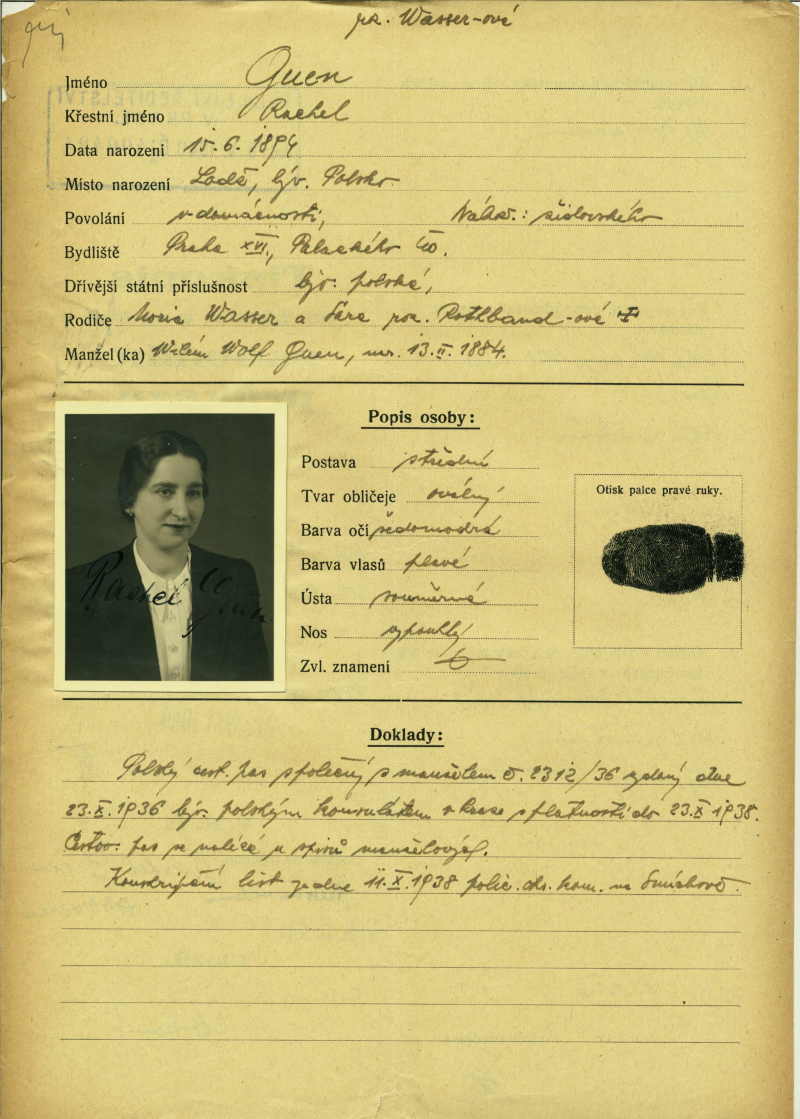 roz. Wasser-ové
Jméno Guen
Křestní jméno Rachel
Data narození 15.6. 1894
Místo narození Lodž, býv. Polsko
Povolání v domácnosti, Nábož.: židovského
Bydliště Praha XVI., Palackého
Dřívější státní příslušnost býv. polská,
Rodiče Wasser a Sára roz. Rothband-ové
Manžel(ka) Vilém Wolf Guen, nar. 13. II. 1884.
Popis osoby:
Postava střední
Tvar obličeje oválný
Barva očí šedomodrá
Barva vlasů plavé
Ústa souměrná
Nos vypouklý
Zvl. znamení
Otisk palce pravé ruky.
Rachel Guen
Doklady:
Polský cest. pas společný s manželem č. 2312/36 vydaný dne
23. X. 1936 býv. polským konsulátem v Praze s platností do 23. X 1938.
Cestov. pas se nalézá u spisů manželových.
Konskripční list ze dne 11. X. 1938 polic. kom. na Smíchově.